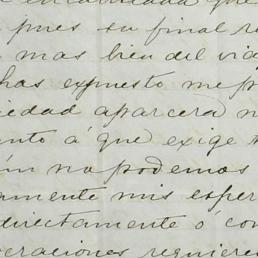 que
pues su final re
mas bien del via
has expuesto me p
iedad aparcera n
nto á que exige
ín no podemos
amente mis esper
directamente ó con
eraciones requiere